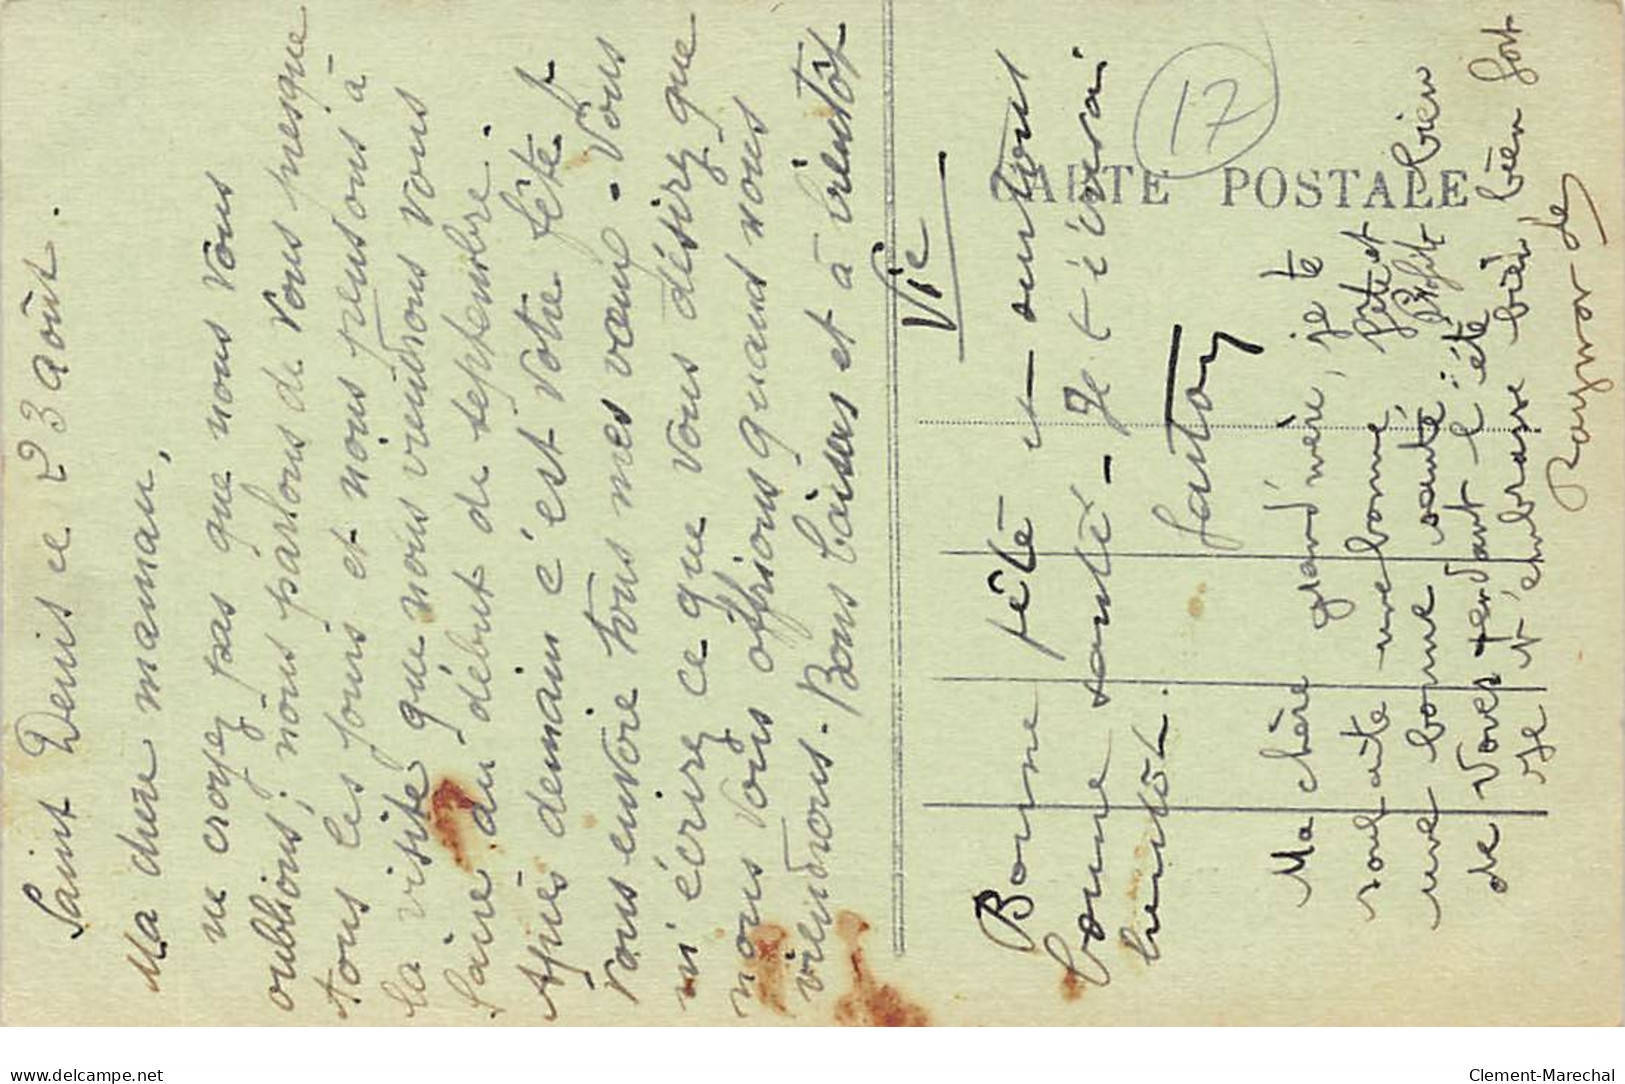 Saint Denis ce 23 août.
Ma chère maman,
ne croyez pas que nous vous
oublions; nous parlons de vous presque
tous les jours et nous pensons à
la visite que nous viendrons vous
faire au début de septembre.
Après demain c'est votre fête et
vous envoie tous mes vœux - Vous
m'écrirez ce que vous désirez que
nous vous offrions quand nous
viendrons - Bons baisers et à bientôt
Vic
Bonne fête et surtout
bonne santé - Je t'écrirai
bientôt.
Gaston
Ma chère grand'mère, je te
souhaite une bonne fête et
une bonne santé. Profite bien
de Voves pendant l'été
Je t'embrasse bien, bien, bien fort
Raymonde
CARTE POSTALE
17
www.delcampe.net
Clement-Marechal